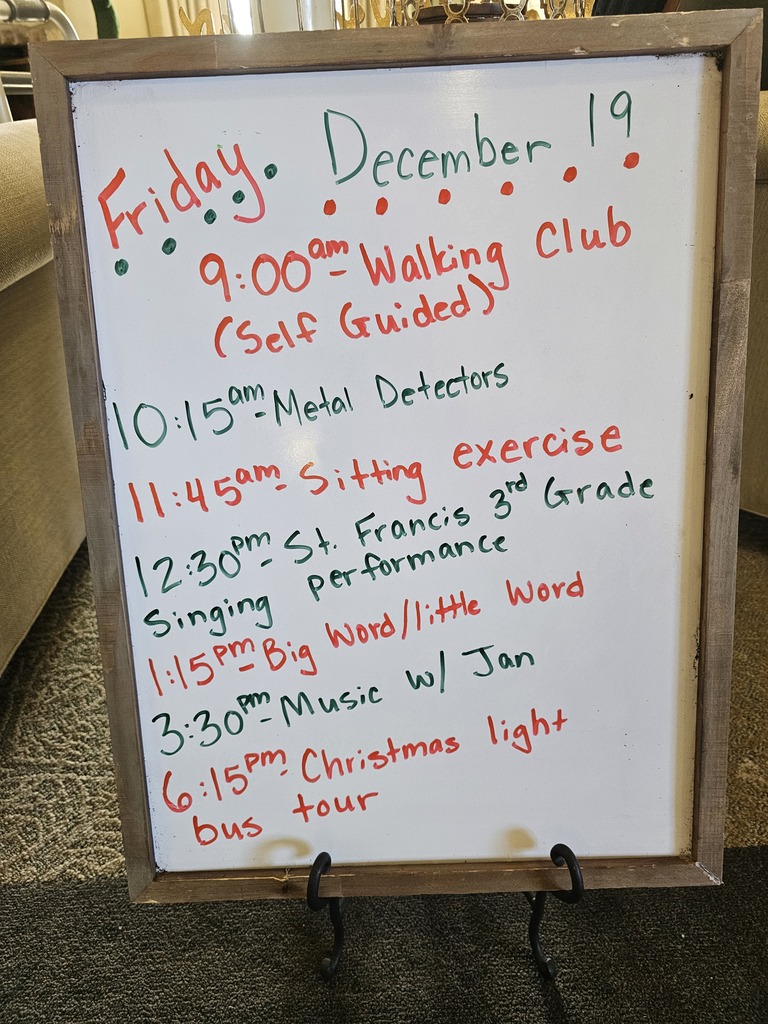 Friday. December 19
9:00am-Walking Club
(Self Guided)
10:15am-Metal Detectors
11:45am-Sitting exercise
12:30pm-St. Francis 3rd Grade
Singing performance
1:15pm-Big Word/little Word
3:30pm-Music w/ Jan
6:15pm-Christmas light
bus tour